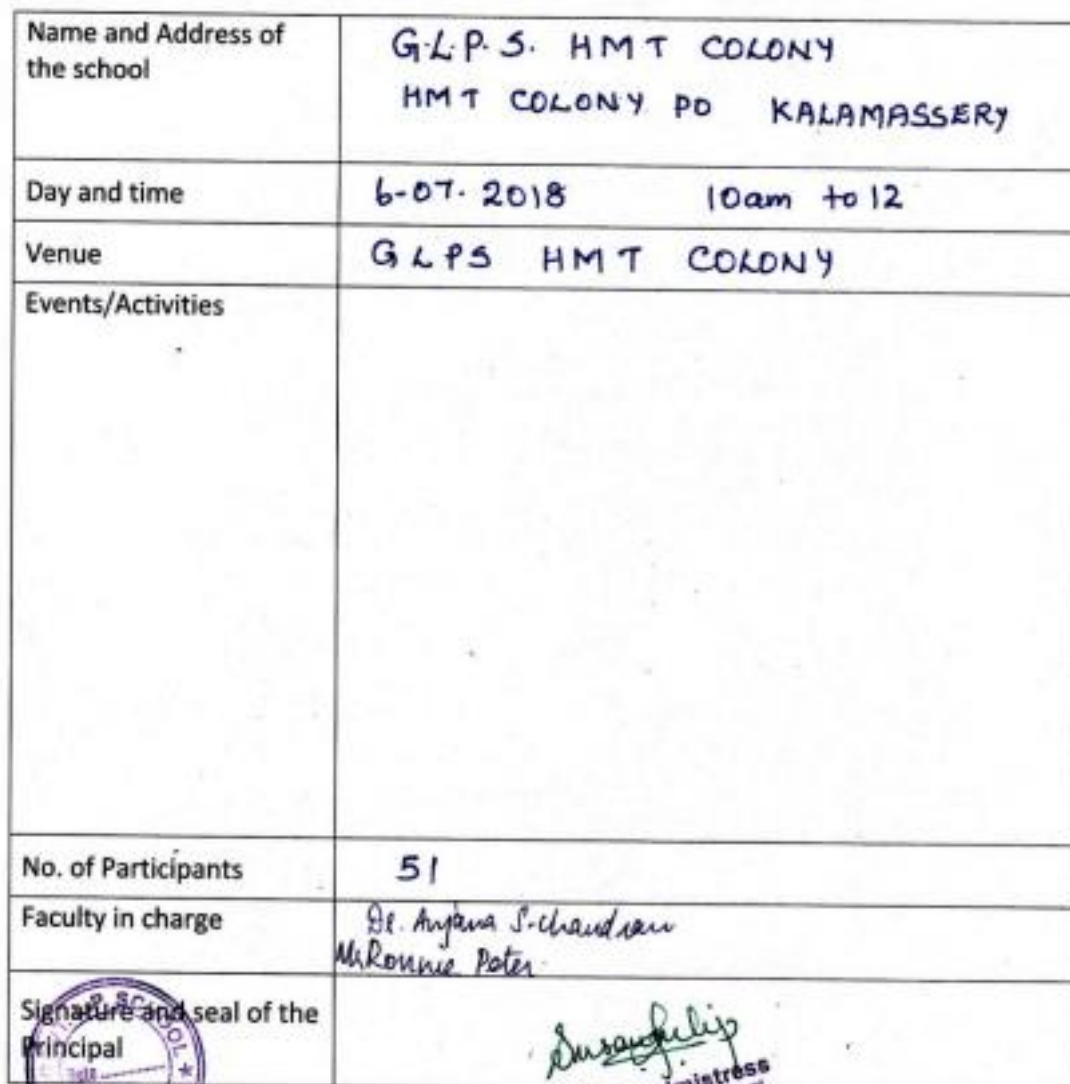 Name and Address of
the school
G.L.P.S. HMT COLONY
HMT COLONY PO KALAMASSERY
Day and time
6-07.2018 10am to 12
Venue
GLPS HMT COLONY
Events/Activities
No. of Participants
51
Faculty in charge
Dr. Anjana S. Chandran
Mr Ronnie Peter
Signature and seal of the
Principal
P SCHOOL
Susan Philip
mistress